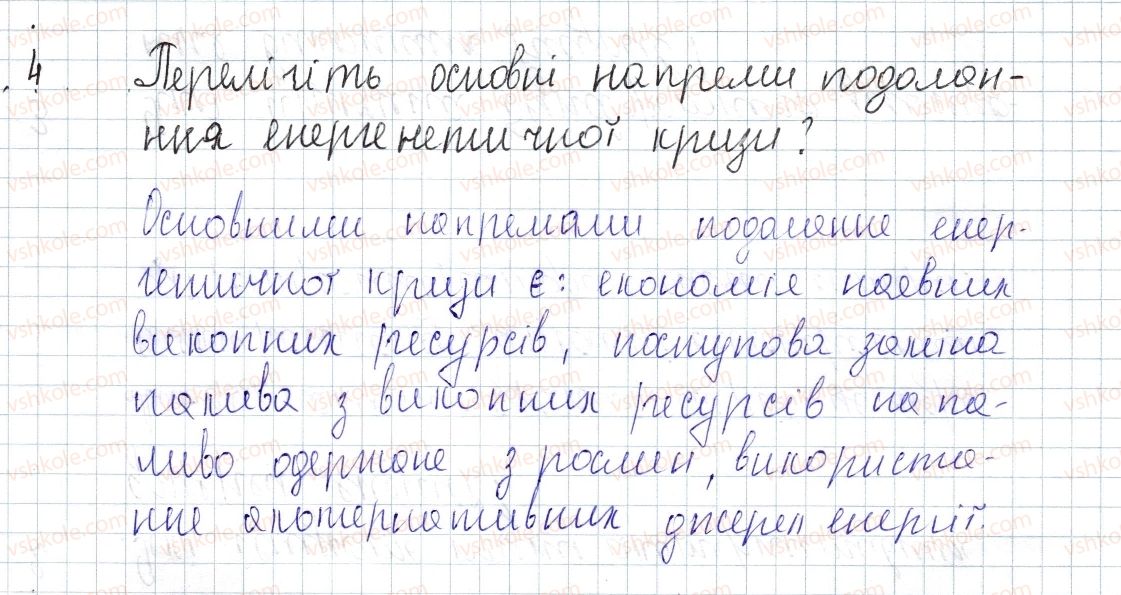 4 Перелічіть основні напреми подолан-
ння енергенетичної кризи?
Основними напремами подалення енер-
гетичної кризи є: економія наявних
викопних ресурсів, поступова заміна
палива з викопних ресурсів на па-
ливо одержане з рослин, використа-
ння альтернативних джерел енергії.